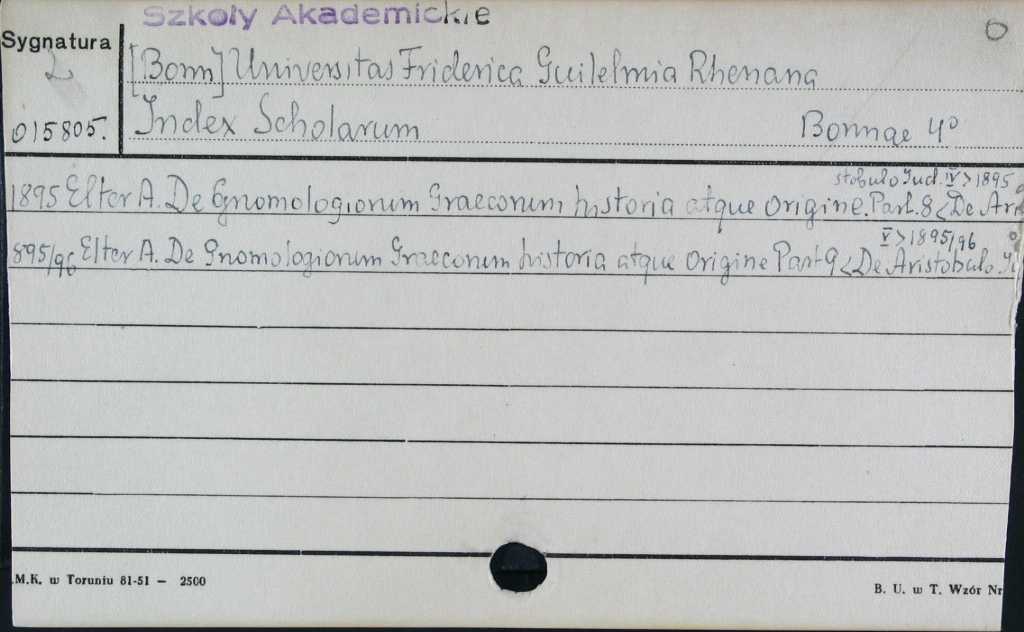 Szkoły Akademickie
Sygnatura
2
015805.
[Bonn] Universitas Friderica Guilelmia Rhenana
Index Scholarum Bonnae 4°
stobulo Jud. IV > 1895
1895 Elter A. De Gnomologiorum Graecorum historia atque origine. Part. 8 < De Ari
V > 1895/96
895/96 Elter A. De Gnomologiorum Graecorum historia atque origine Part 9 < De Aristobulo Ju
M.K. w Toruniu 81-51 — 2500
B. U. w T. Wzór Nr